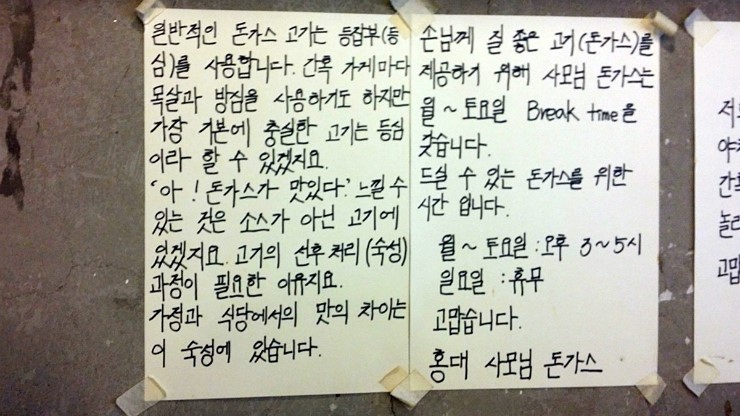 일반적인 돈가스 고기는 등잡부(등
심)를 사용합니다. 간혹 가게마다
목살과 방심을 사용하기도 하지만
가장 기본에 충실한 고기는 등심
이라 할 수 있겠지요.
'아! 돈가스가 맛있다.' 느낄 수
있는 것은 소스가 아닌 고기에
있겠지요. 고기의 선후처리(숙성)
과정이 필요한 이유지요.
가정과 식당에서의 맛의 차이는
이 숙성에 있습니다.
손님께 질 좋은 고기(돈가스)를
제공하기 위해 사모님 돈가스는
월~토요일 Break time을
갖습니다.
드실 수 있는 돈가스를 위한
시간 입니다.
월~토요일 : 오후 3~5시
일요일 : 휴무
고맙습니다.
홍대 사모님 돈가스
저
야
간혹
놀
고맙